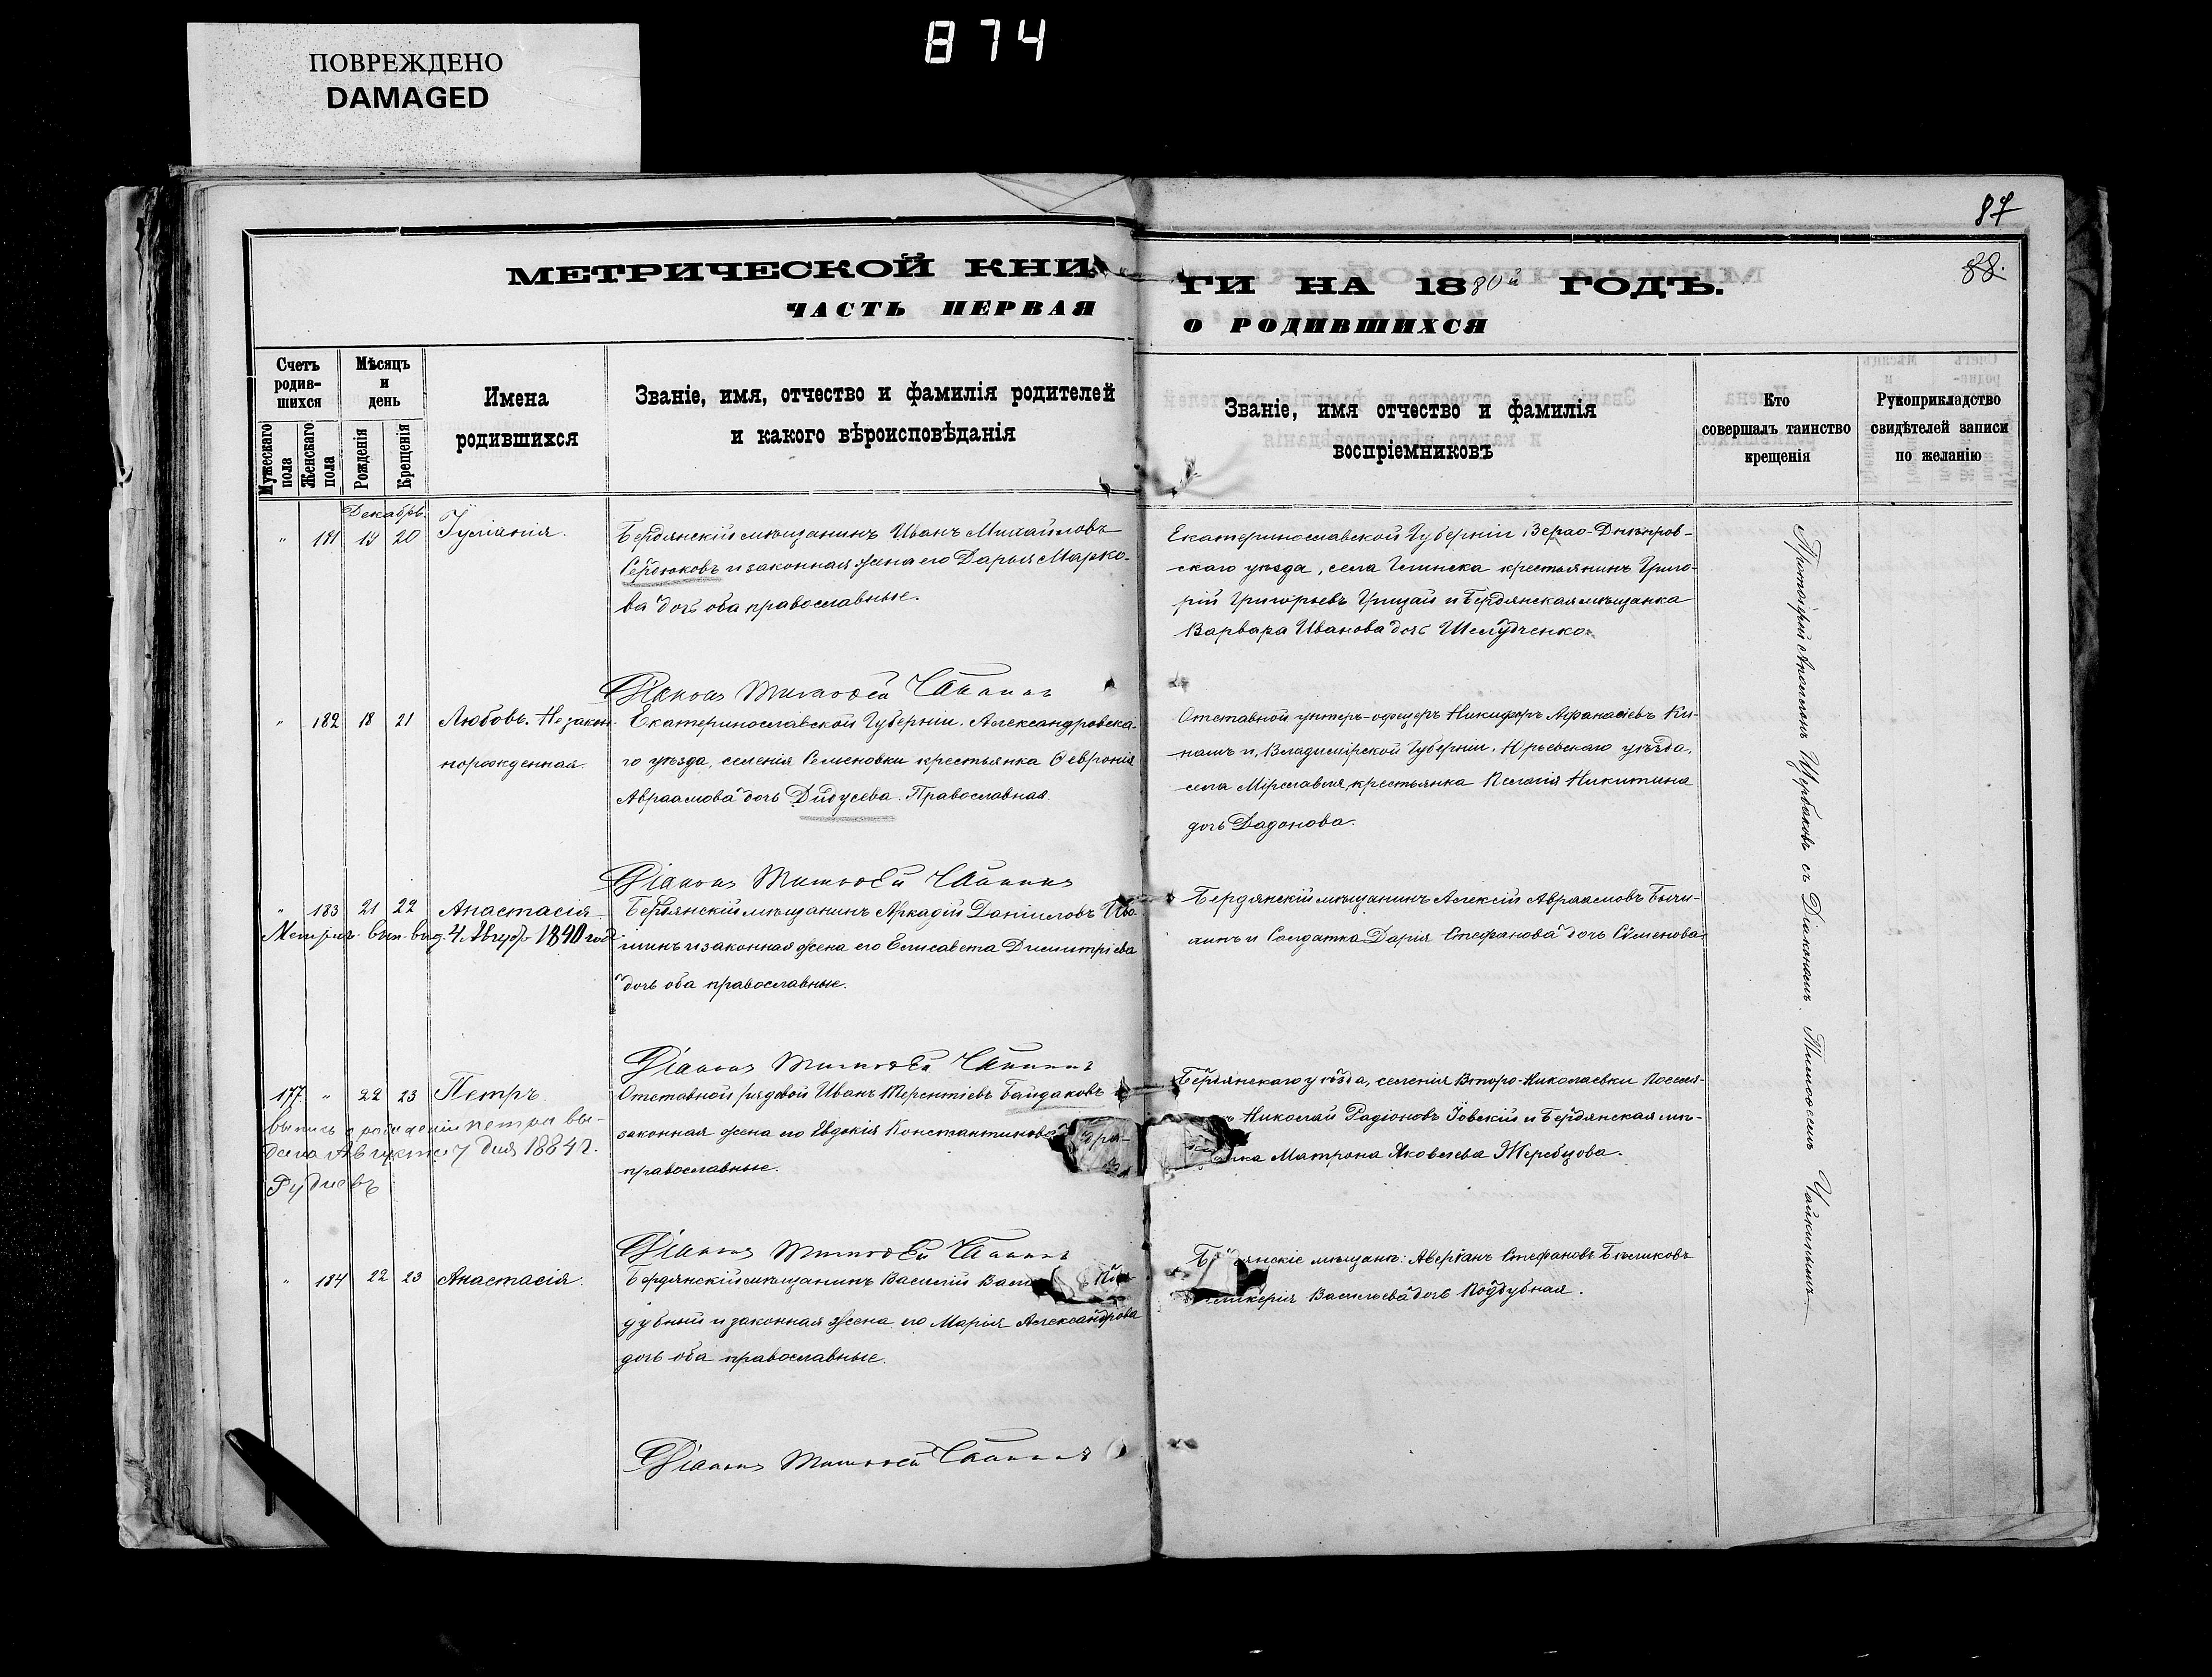 ПОВРЕЖДЕНО
DAMAGED
874
87
88.
МЕТРИЧЕСКОЙ КНИ
ГИ НА 1880й ГОДЪ.
ЧАСТЬ ПЕРВАЯ
О РОДИВШИХСЯ
Счетъ родив-шихся
Мужескаго пола
Женскаго пола
Мѣсяцъ и день
Рожденія
Крещенія
Имена родившихся
Званіе, имя, отчество и фамилія родителей
и какого вѣроисповѣданія
Званіе, имя отчество и фамилія
воспріемниковъ
Кто
совершалъ таинство
крещенія
Рукоприкладство
свидѣтелей записи
по желанію
Декабрь.
" 181 14 20 Іуліанія.
Бердянскій мѣщанинъ Иванъ Михайловъ
Сердюковъ и законная жена его Дарья Марко-
ва дочь оба православные.
Екатеринославской Губерніи Верхо-Днѣпров-
скаго уѣзда, села Глинска крестьянинъ Григо-
рій Григорьевъ Грицай и Бердянская мѣщанка
Варвара Иванова дочь Шелудченко.
Діаконъ Тимофей Чайкинъ
" 182 18 21 Любовь. Незакон-
норожденная.
Екатеринославской Губерніи, Александровска-
го уѣзда, селенія Семеновки крестьянка Февронія
Авраамова дочь Дидусева. Православная.
Отставной унтеръ-офицеръ Никифоръ Афанасіевъ Ки-
нашъ и, Владимірской Губерніи, Юрьевскаго уѣзда,
села Міреславля, крестьянка Пелагія Никитина
дочь Дадонова.
Діаконъ Тимофей Чайкинъ
" 183 21 22 Анастасія
Метрич. вып. выд. 4 Август 1890 год
Бердянскій мѣщанинъ Аркадій Даніиловъ
шинъ и законная жена его Елисавета Димитріева
дочь оба православные.
Бердянскій мѣщанинъ Алексій Авраамовъ Бычи-
линъ и Солдатка Дарія Стефанова дочь Сѵменова.
Діаконъ Тимофей Чайкинъ
177 " 22 23 Петръ.
выпись о рожденіи Петра вы-
дана Августа 7 дня 1884 г.
Рудневъ
Отставной рядовой Иванъ Терентіевъ Байдаковъ
законная жена его Евдокія Константинова
православные.
Бердянскаго уѣзда, селенія Второ-Николаевки поселя-
Николай Радіоновъ Іовскій и Бердянская мѣ-
Матрона Яковлева Жеребцова.
Діаконъ Тимофей Чайкинъ
" 184 22 23 Анастасія.
Бердянскій мѣщанинъ Василій
дубный и законная жена его Марія Александрова
дочь оба православные.
мѣщане: Аверкій Стефановъ Бѣликовъ
Васильева дочь Поддубная.
Діаконъ Тимофей Чайкинъ
Протоіерей Аполлонъ Щербаковъ съ Діакономъ Тимофеемъ Чайкинымъ.